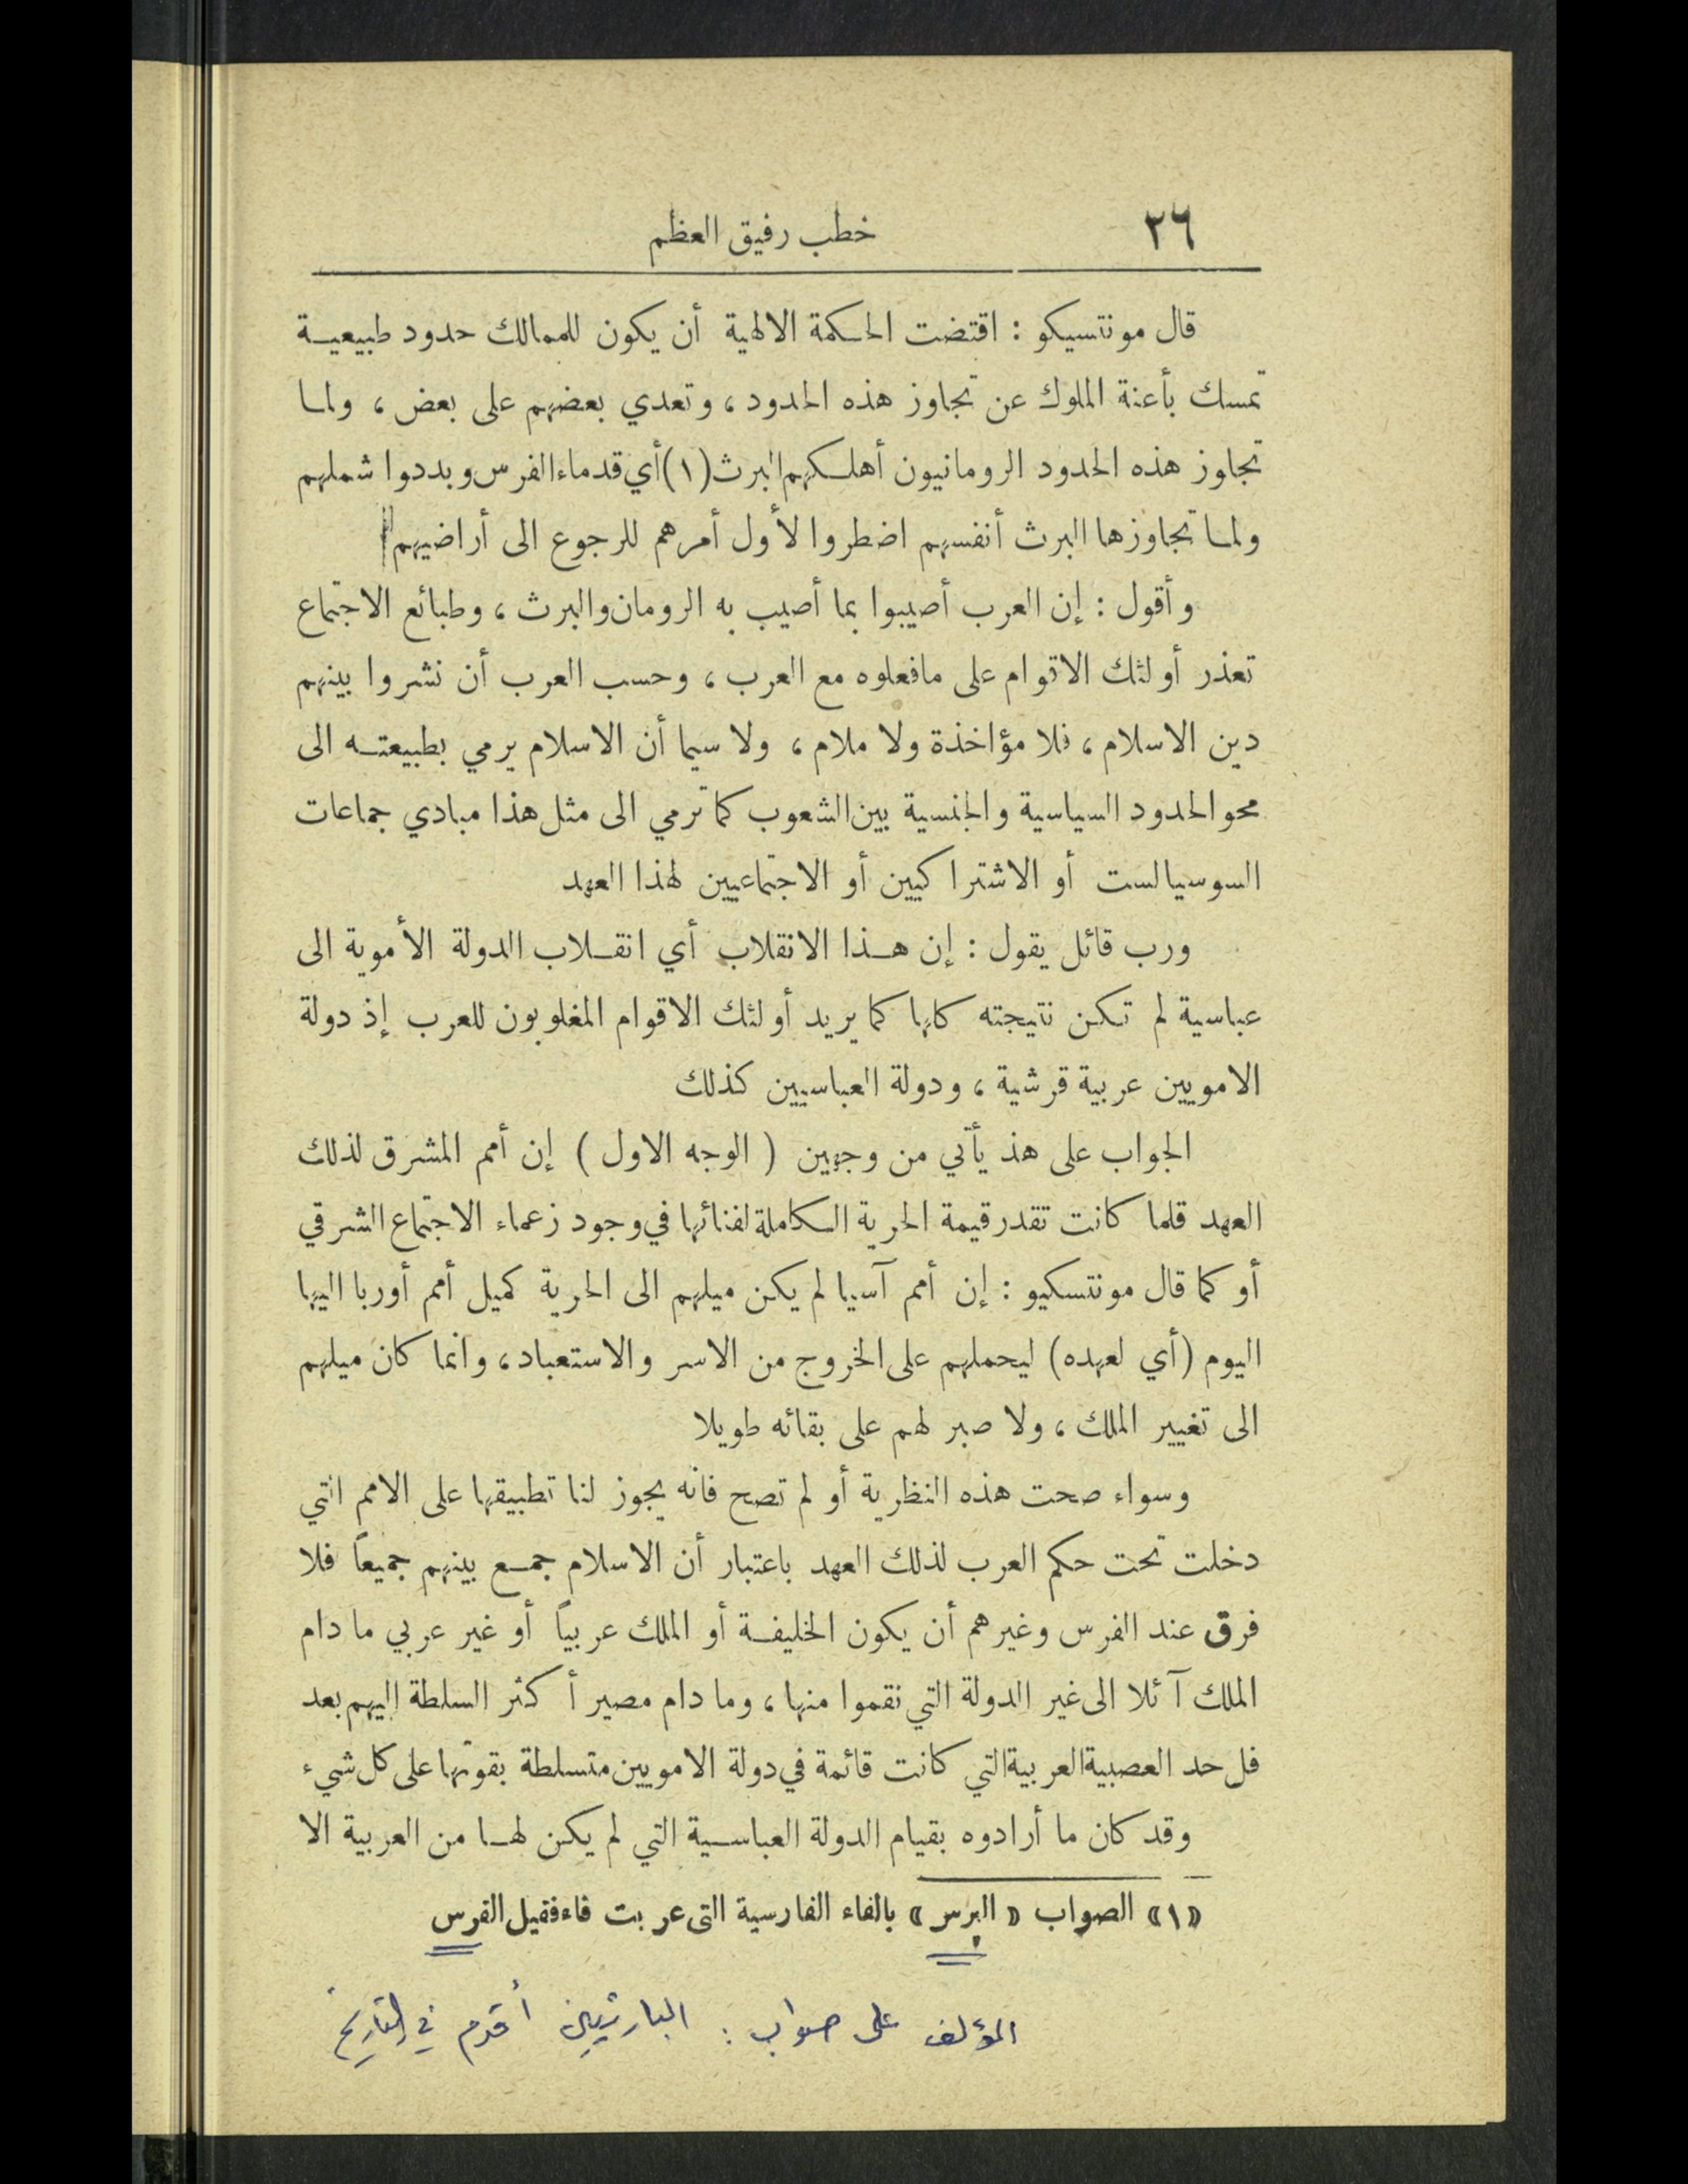 ٢٦
خطب رفيق العظم
قال مونتسيكو : اقتضت الحكمة الالهية أن يكون للممالك حدود طبيعية
تمسك بأعنة الملوك عن تجاوز هذه الحدود ، وتعدي بعضهم على بعض ، ولما
تجاوز هذه الحدود الرومانيون أهلكهم البرث (١) أي قدماء الفرس وبددوا شملهم
ولما تجاوزها البرث أنفسهم اضطروا لأول أمرهم للرجوع الى أراضيهم
وأقول : إن العرب أصيبوا بما أصيب به الرومان والبرث ، وطبائع الاجتماع
تعذر أولئك الاقوام على مافعلوه مع العرب ، وحسب العرب أن نشروا بينهم
دين الاسلام ، فلا مؤاخذة ولا ملام ، ولا سيما أن الاسلام يرمي بطبيعته الى
محو الحدود السياسية والجنسية بين الشعوب كما ترمي الى مثل هذا مبادي جماعات
السوسيالست أو الاشتراكيين أو الاجتماعيين لهذا العهد
ورب قائل يقول : إن هذا الانقلاب أي انقلاب الدولة الأموية الى
عباسية لم تكن نتيجته كلها كما يريد أولئك الاقوام المغلوبون للعرب إذ دولة
الامويين عربية قرشية ، ودولة العباسيين كذلك
الجواب على هذ يأتي من وجهين ( الوجه الاول ) إن أمم المشرق لذلك
العهد قلما كانت تقدر قيمة الحرية الكاملة لفنائها في وجود زعماء الاجتماع الشرقي
أو كما قال مونتسكيو : إن أمم آسيا لم يكن ميلهم الى الحرية كميل أمم أوربا اليها
اليوم (أي لعهده) ليحملهم على الخروج من الاسر والاستعباد ، وانما كان ميلهم
الى تغيير الملك ، ولا صبر لهم على بقائه طويلا
وسواء صحت هذه النظرية أو لم تصح فانه يجوز لنا تطبيقها على الامم التي
دخلت تحت حكم العرب لذلك العهد باعتبار أن الاسلام جمع بينهم جميعاً فلا
فرق عند الفرس وغيرهم أن يكون الخليفة أو الملك عربياً أو غير عربي ما دام
الملك آئلا الى غير الدولة التي نقموا منها ، وما دام مصير أكثر السلطة اليهم بعد
فل حد العصبية العربية التي كانت قائمة في دولة الامويين متسلطة بقوتها على كل شيء
وقد كان ما أرادوه بقيام الدولة العباسية التي لم يكن لها من العربية الا
«١» الصواب «البرس» بالفاء الفارسية التى عربت فاء فقيل الفرس
المؤلف على صواب : البارثيين أقدم في التاريخ